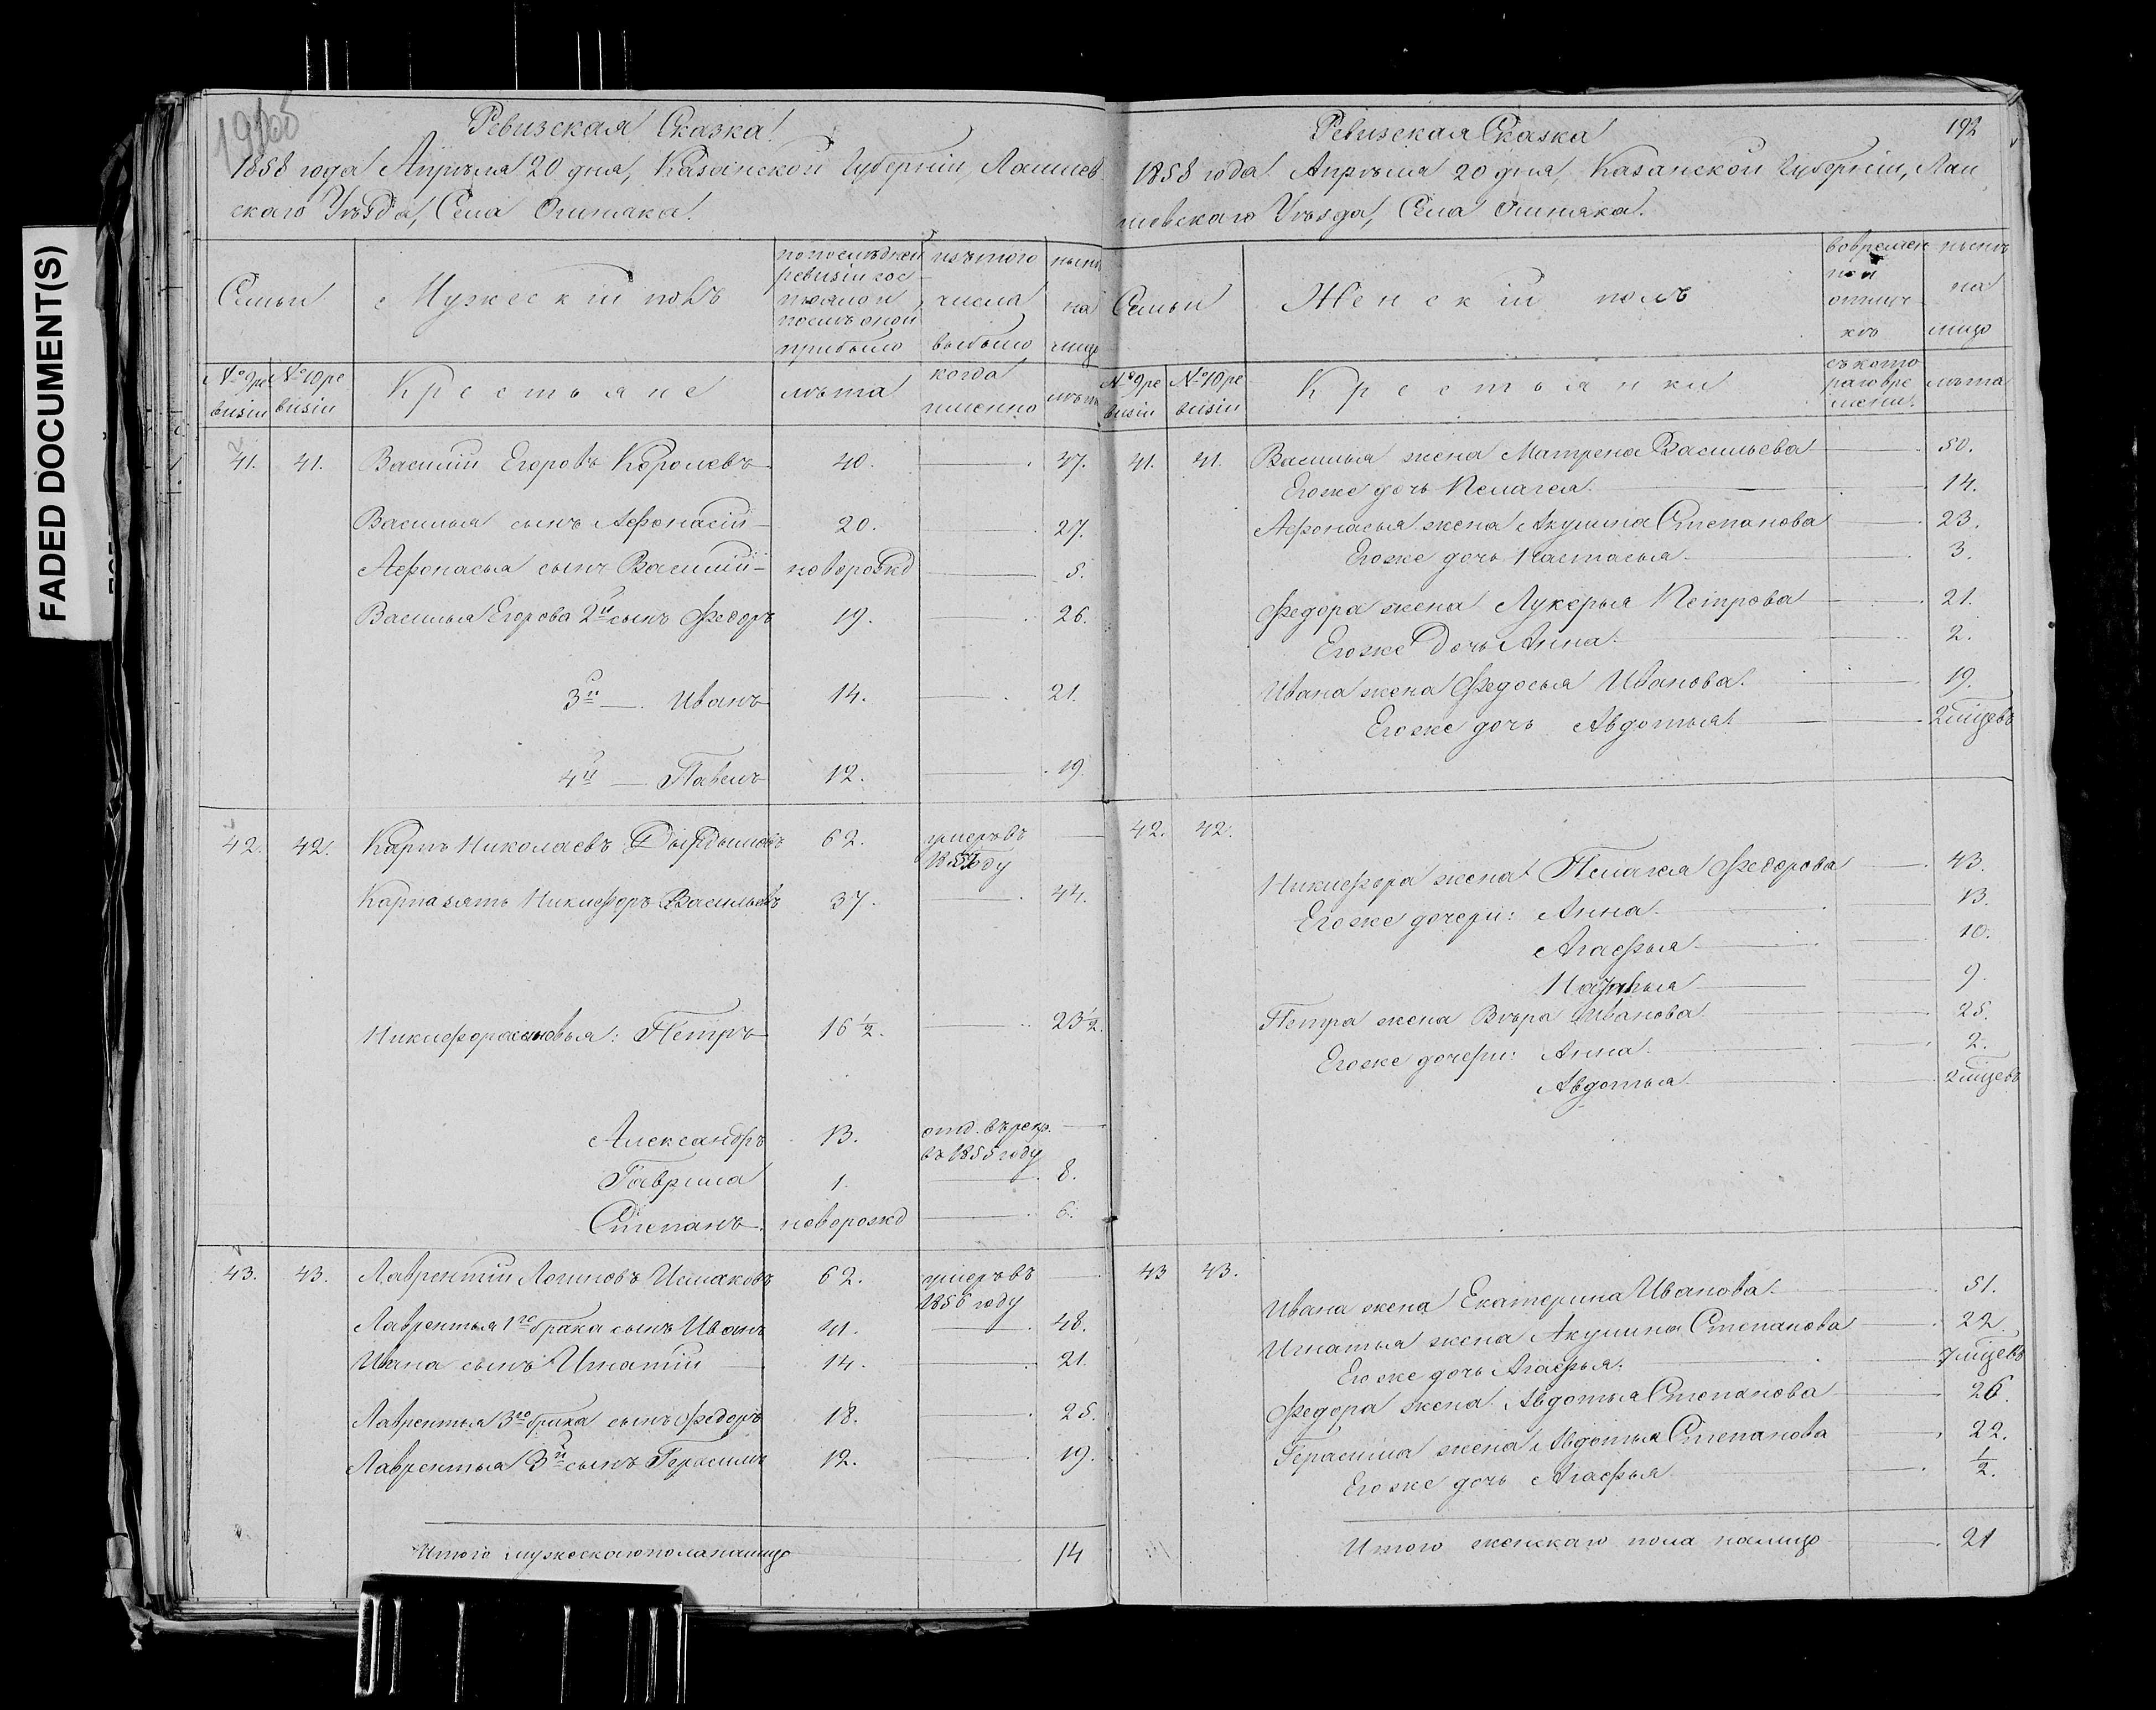 FADED DOCUMENT(S)
Ревизская Сказка
1858 года Апрѣля 20 дня, Казанской Губерніи, Лаишев
скаго Уѣзда, Села Ошняка.
Семьи
Мужескій полъ
по послѣдней
ревизіи сос
тояло и
послѣ оной
прибыло
изъ того
числа
выбыло
нынѣ
на
лицо
№ 9 ре
визіи
№ 10 ре
визіи
Крестьяне
лѣта
когда
именно
лѣта
41. 41. Василій Егоровъ Королевъ 40. 47.
Василья сынъ Афонасій 20. 27.
Афонасья сынъ Василій новорожд 5.
Василья Егорова 2й сынъ Федоръ 19. 26.
3й Иванъ 14. 21.
4й Павелъ 12. 19.
42. 42. Карпъ Николаевъ 62. умеръ въ
году
Карпа зять Никифоръ Васильевъ 37. 44.
Никифора сыновья: Петръ 16 ½. 23 ½.
Александръ 13. отд. въ рекр.
въ 1855 году
Гаврила 1. 8.
Степанъ новорожд 6.
43. 43. Лаврентій Логиновъ Исмаковъ 62. умеръ въ
1856 году
Лаврентья 1го брака сынъ Иванъ 41. 48.
Ивана сынъ Игнатій 14. 21.
Лаврентья 3го брака сынъ Федоръ 18. 25.
Лаврентья 3й сынъ Герасимъ 12. 19.
Итого мужескаго пола налицо 14
Ревизская Сказка
192
1858 года Апрѣля 20 дня, Казанской Губерніи, Лаи
шевскаго Уѣзда, Села Ошняка.
Семьи
Женскій полъ
во времен
ной
отлуч
кѣ
нынѣ
на
лицо
№ 9 ре
визіи
№ 10 ре
визіи
Крестьянки
съ кото
раго вре
мени.
лѣта
41. 41. Василья жена Матрена Васильева 50.
Его же дочь Пелагея. 14.
Афонасья жена Акулина Степанова 23.
Его же дочь Настасья. 3.
Федора жена Лукерья Петрова 21.
Его же дочь Анна. 2.
Ивана жена Федосья Иванова. 19.
Его же дочь Авдотья. 2 мцсвъ
42. 42.
Никифора жена Пелагея Федорова 43.
Его же дочери: Анна. 13.
Агафья 10.
9
Петра жена Вѣра Иванова 25.
Его же дочери: Анна. 2.
Авдотья. 2 мцсвъ
43 43.
Ивана жена Екатерина Иванова. 51.
Игнатья жена Акулина Степанова 22.
Его же дочь Агафья. 7 мцсвъ
Федора жена Авдотья Степанова 26.
Герасима жена Авдотья Степанова 22.
Его же дочь Агафья ½.
Итого женскаго пола налицо 21